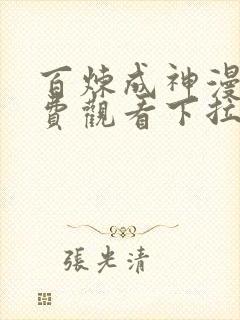 百炼成神漫
費觀看下拉
張光清